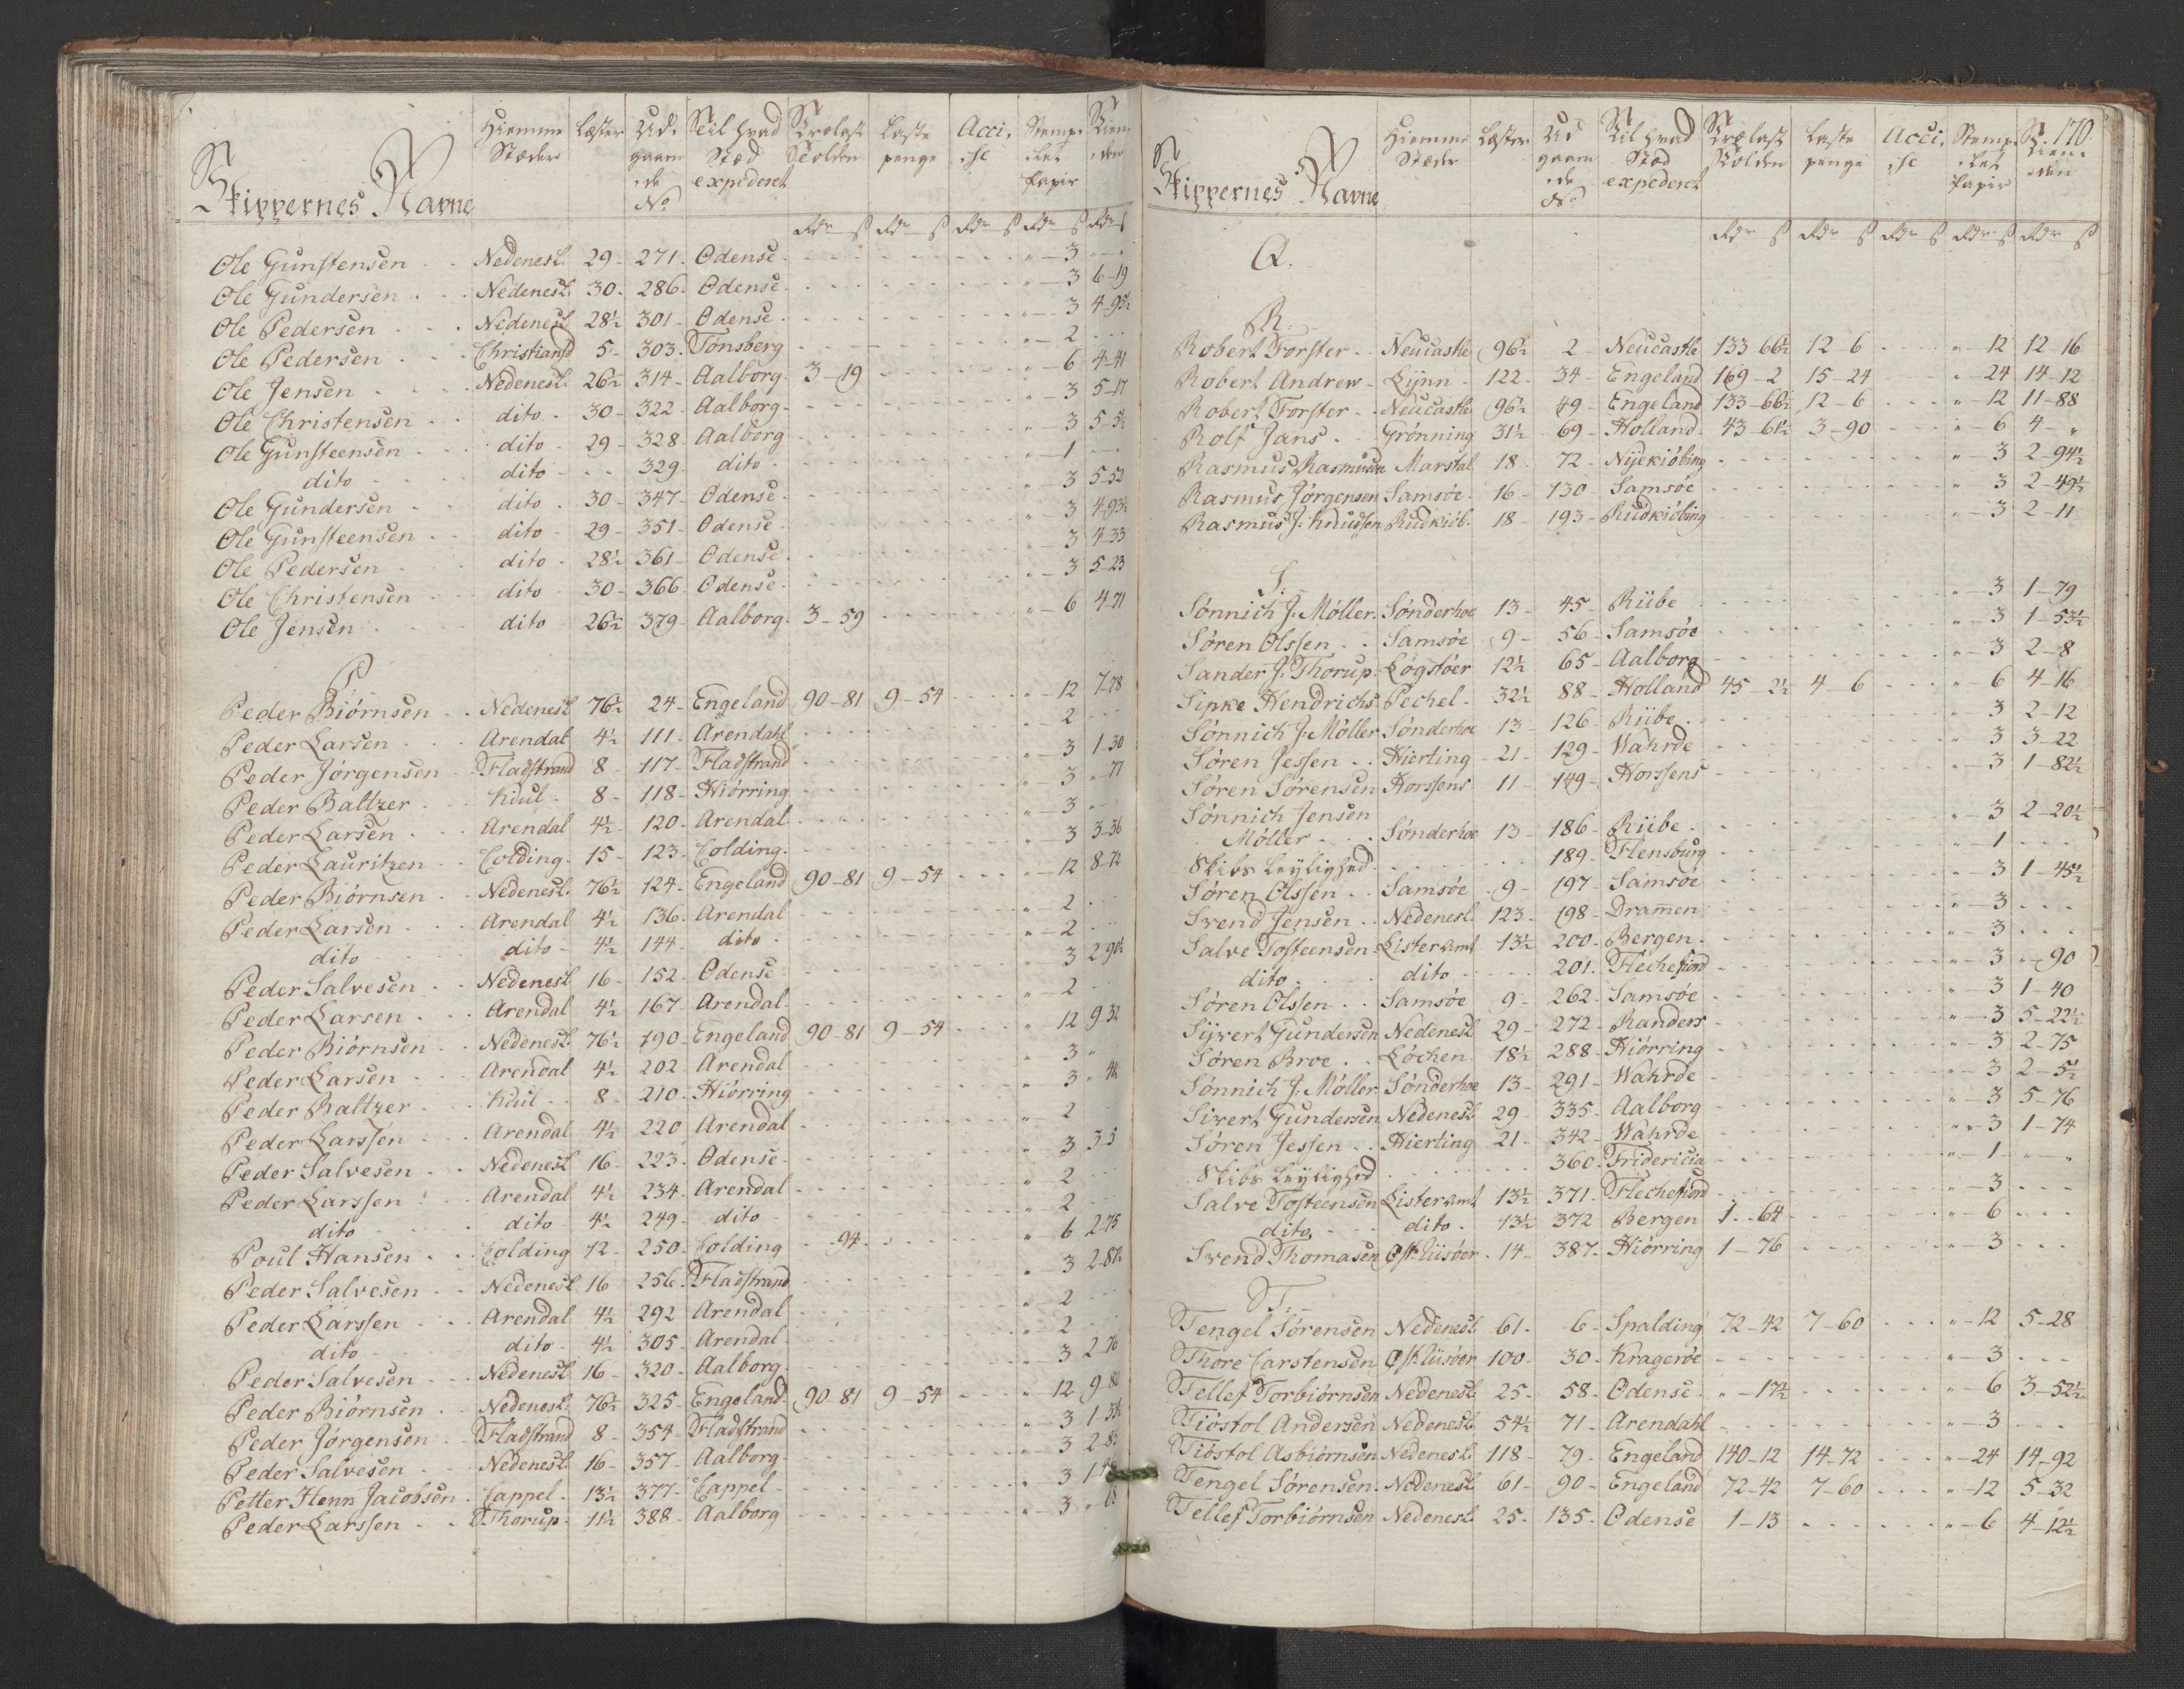 Skippernes Navne | Hiemme Stæder | Læster | Ud gaaen de No | Til hvad Stæd expederet | Trælast Tolden | Laste penge | Acci se | Stemp let Papir
Rdr ß Rdr ß Rdr ß Rdr ß Rdr ß
Ole Gunstensen Nedenesl. 29 271 Odense 3
Ole Gundersen Nedenesl. 30 286 Odense 3 6-19
Ole Pedersen Nedenesl. 28½ 301 Odense 3 4-95½
Ole Pedersen Christiansd 5 303 Tønsberg 2
Ole Jensen Nedenesl. 26½ 314 Aalborg 3-19 6 4-41
Ole Christensen dito 30 322 Aalborg 3 5-17
Ole Gunsteensen dito 29 328 Aalborg 3 5-5½
dito dito 329 dito 1
Ole Gundersen dito 30 347 Odense 3 5-52
Ole Gunsteensen dito 29 351 Odense 3 4-93½
Ole Pedersen dito 28½ 361 Odense 3 4-33
Ole Christensen dito 30 366 Odense 3 5-23
Ole Jensen dito 26½ 379 Aalborg 3-59 6 4-71
P.
Peder Biørnsen Nedenesl 76½ 24 Engeland 90-81 9-54 12 7-78
Peder Larsen Arendal 4½ 111 Arendahl 2
Peder Jørgensen Fladstrand 8 117 Fladstrand 3 1-30
Peder Baltzer Kiul 8 118 Hiørring 3 77
Peder Larsen Arendal 4½ 120 Arendal 3
Peder Lauritzen Colding 15 123 Colding 3 3-36
Peder Biørnsen Nedenesl. 76½ 124 Engeland 90-81 9-54 12 8-72
Peder Larsen Arendal 4½ 136 Arendal 2
dito dito 4½ 144 dito 2
Peder Salvesen Nedenesl 16 152 Odense 3 2-90½
Peder Larsen Arendal 4½ 167 Arendal 2
Peder Biørnsen Nedenesl. 76½ 190 Engeland 90-81 9-54 12 9-32
Peder Larsen Arendal 4½ 202 Arendal 3
Peder Baltzer Kiul 8 210 Hiørring 3
Peder Larssen Arendal 4½ 220 Arendal 2
Peder Salvesen Nedenesl 16 223 Odense 3 3-5
Peder Larssen Arendal 4½ 234 Arendal 2
dito dito 4½ 249 dito 2
Poul Hansen Colding 12 250 Colding 94 6 2-75
Peder Salvesen Nedenesl 16 256 Fladstrand 3 2-87½
Peder Larssen Arendal 4½ 292 Arendal 2
dito dito 4½ 305 Arendal 2
Peder Salvesen Nedenesl 16 320 Aalborg 3 2-76
Peder Biørnsen Nedenesl. 76½ 325 Engeland 90-81 9-54 12 9-80
Peder Jørgensen Fladstrand 8 354 Fladstrand 3
Peder Salvesen Nedenesl. 16 357 Aalborg 3
Petter Henn Jacobsen Cappel 13½ 377 Cappel 3
Peder Larssen Thorup 11½ 388 Aalborg 3
170
Skippernes Navne | Hiemme Stæder | Læster | Ud gaaen de No | Til hvad Stæd expederet | Trælast Tolden | Laste penge | Acci se | Stemp let Papir
Rdr ß Rdr ß Rdr ß Rdr ß Rdr ß
Q.
R.
Robert Forster Neucastle 96½ 2 Neucastle 133-66½ 12-6 12 12-16
Robert Andrew Lynn 122 34 Engeland 169-2 15-24 24 14-12
Robert Forster Neucastle 96½ 49 Engeland 133-66½ 12-6 12 11-88
Rolf Jans Grønning 31½ 69 Holland 43-61½ 3-90 6 4
Rasmus Rasmusen Marstal 18 72 Nyekiøbing 3 2-94½
Rasmus Jørgensen Samsøe 16 130 Samsøe 3 2-49½
Rasmus J: Knudsen Rudkiøb. 18 193 Rudkiøbing 3 2-11
S.
Sønnich J: Møller Sønderhoe 13 45 Riibe 3 1-79
Søren Olssen Samsøe 9 56 Samsøe 3 1-53½
Sander J: Thorup Løgstøer 12½ 65 Aalborg 3 2-8
Sipke Hendrichs Pechel 32½ 88 Holland 45-2½ 4-6 6 4-16
Sønnich J: Møller Sønderhoe 13 126 Riibe 3 2-12
Søren Jessen Hierting 21 129 Wahrde 3 3-22
Søren Sørensen Horssens 11 149 Horssens 3 1-82½
Sønnich Jensen
Møller Sønderhoe 13 186 Riibe 3 2-20½
Skibs Leylighed 189 Flensburg 1
Søren Olssen Samsøe 9 197 Samsøe 3 1-45½
Svend Jensen Nedenesl. 123 198 Dramen 3
Salve Tosteensen Lister amt 13½ 200 Bergen 3
dito dito 201 Flechefiord 3 90
Søren Olssen Samsøe 9 262 Samsøe 3 1-40
Syvert Gundersen Nedenesl 29 272 Randers 3 5-22½
Søren Broe Løchen 18½ 288 Hiørring 3 2-75
Sønnich J: Møller Sønderhoe 13 291 Wahrde 3 2-5½
Sivert Gundersen Nedenesl. 29 335 Aalborg 3 5-76
Søren Jessen Hierting 21 342 Wahrde 3 1-74
Skibs Leylighed 360 Fridericia 1
Salve Tosteensen Lister amt 13½ 371 Flechefiord 3
dito dito 13½ 372 Bergen 1-64 6
Svend Thomasen Østriisøer 14 387 Hiørring 1-76 3
T.
Tengel Sørensen Nedenesl. 61 6 Spalding 72-42 7-60 12 5-28
Thore Carstensen Østriisøer 100 30 Kragerøe 3
Tellef Torbiørnsen Nedenesl. 25 58 Odense 17½ 6 3-52½
Tiøstol Andersen Nedenesl. 54½ 71 Arendahl 3
Tiøstol Asbiørnsen Nedenesl. 118 79 Engeland 140-12 14-72 24 14-92
Tengel Sørensen Nedenesl 61 90 Engeland 72-42 7-60 12 5-32
Tellef Torbiørnsen Nedenesl. 25 135 Odense 1-13 6 4-12½